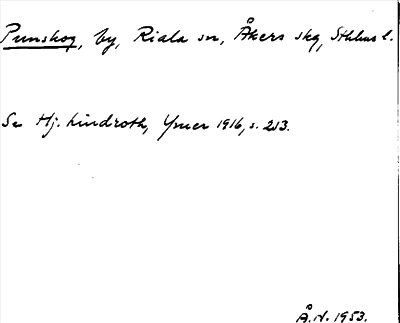 Punskog, by, Riala sn, Åkers skg, Sthlms l.
Se Hj. Lindroth, Ymer 1916, s. 253.
Å.N. 1953.